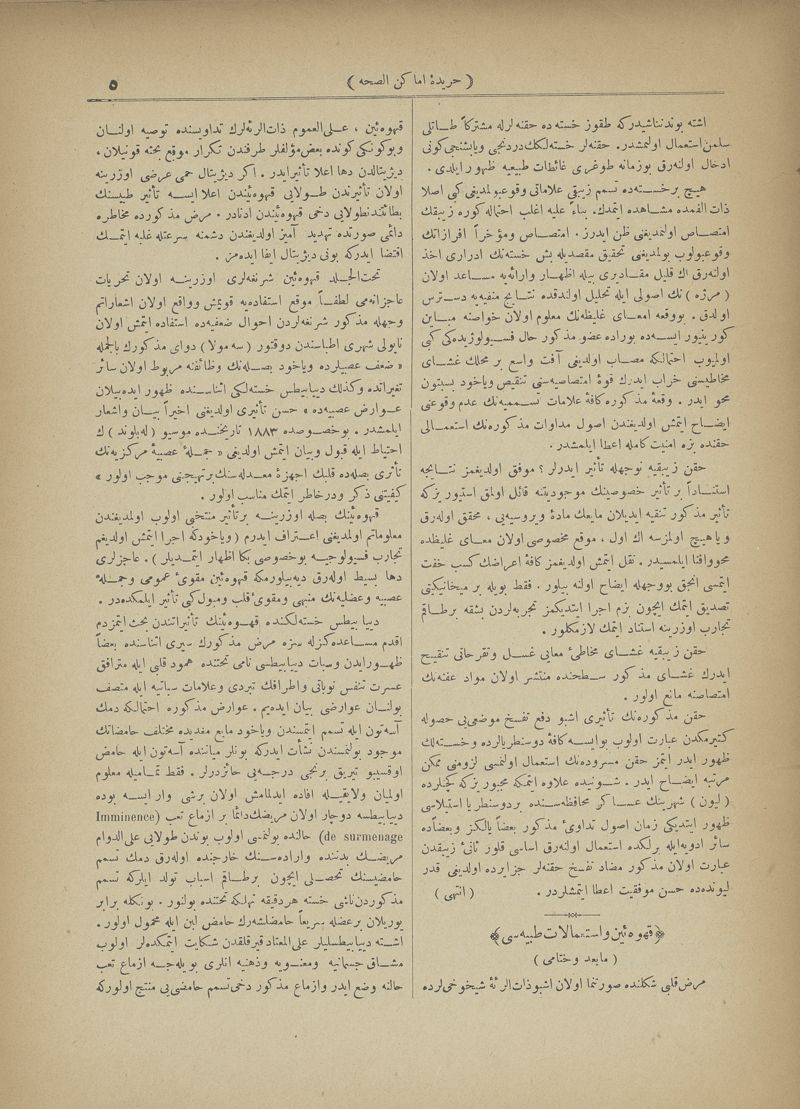 ( جریدهٔ اماکن الصحه )
۵
اشته بوندنناشیدرکه طقوز خسته ده حقنه لرله مشترکاً طاتلی
سلمن استعمال اولنمشدر. حقنه لر خسته لکک دردنجی ویابشنجی کونی
ادخال اوله‌رق بوزمانه طوغری غائطات طبیعیه ظهور ایلدی .
هیچ برخسته ده تسمم زیبقی علاماتی وقوعبولمدیغی کبی اصلا
ذات الفمده مشاهده ایتمدك. بناءً علیه اغلب احتماله کوره زیبقك
امتصاص اولنمدیغنی ظن ایدرز. امتصاص ومؤخراً افرازاتك
وقوعبولوب بولمدیغنی تحقیق مقصدیله بش خسته‌نك ادراری اخذ
اوله‌رق اك قلیل مقادیری بیله اظهار وارائه‌یه مساعد اولان
( مرژه ) نك اصولی ایله تحلیل اولندقده نتایج منفیه‌یه دسترس
اولدق . بووقعه امعای غلیظه‌نك معلوم اولان خواصنه مباین
کورینیور ایسه‌ده بوراده عضو مذکور حال فسیولوژیده‌کی کبی
اولمیوب احتمالکه مصاب اولدیغی آفت واسع بر محلك غشای
مخاطیسنی خراب ایدرك قوهٔ امتصاصیه‌سنی تنقیص ویاخود بستون
محو ایدر. وقعهٔ مذکوره کافهٔ علامات تسممیه‌نك عدم وقوعنی
ایضاح ایتمش اولدیغندن اصول مداوات مذکوره‌نك استعمالی
حقنده بزه امنیت کامله اعطا ایلمشدر.
حقن زیبقیه نوجهله تأثیر ایدرلر ؟ موفق اولدیغمز نتایجه
استناداً بر تأثیر خصوصینك موجودیتنه قائل اولمق استیور بزکه
تأثیر مذکور تنقیه ایدیلان مایعك مادهٔ ویروسیه‌یی ، محقق اوله‌رق
ویاهیچ اولمزسه اك اول ، موقع مخصوصی اولان معای غلیظده
محووافنا ایلمسیدر. نقل ایتمش اولدیغمز کافهٔ اعراضك کسب خفت
ایتمسی انجق بووجهله ایضاح اولنه بیلور. فقط بویله بر میخانیکیتی
تصدیق ایتمك ایچون بزم اجرا ایتدیکمز تجربه‌لردن بشقه برطاقم
تجارب اوزرینه استناد ایتمك لازمکلور .
حقن زیبقیه غشای مخاطیٔ معایی غسل وتقرحاتی تنقیح
ایدرك غشای مذکور سطحنده منتشر اولان مواد عفنه‌نك
امتصاصنه مانع اولور .
حقن مذکوره‌نك تأثیری اشبو دفع تفسخ موضعی‌یی حصوله
کتیرمکدن عبارت اولوب بوایسه کافهٔ دوسنطریالرده وخسته‌لك
ظهور ایدر ایتمز حقن مسروده‌نك استعمال اولنمسی لزومنی ممکن
مرتبه ایضاح ایدر . شونیده علاوه ایتمکه مجبور بزکه کچنلرده
( لیون ) شهرینك عساکر محافظه‌سنده بردوسنطریا استیلاسی
ظهور ایتدیکی زمان اصول تداویٔ مذکور بعضاً یالکز وبعضاده
سائر ادویه‌ایله برلکده استعمال اوله‌رق اساسی قلور ثانیٔ زیبقدن
عبارت اولان مذکور مضاد تفسخ حقنه‌لر جزایرده اولدیغی قدر
لیونده‌ده حسن موفقیت اعطا ایتمشلردر. ( انتهی )
﴿ قهوه‌ئین واستعمالات طبیه‌سی ﴾
( مابعد وختامی )
مرض قلبی شکلنده صورتنما اولان اشبو ذات الرئهٔ شیخوخی لرده
قهوه‌ئین ، علی‌العموم ذات‌الرئه‌لرك تداویسنده توصیه اولنان
وبوکونکی کونده بعض مؤلفلر طرفندن تکرار موقع بحثه قونیلان ،
دیژیتالدن دها اعلا تأثیر ایدر. اکر دیژیتال حمی مرضی اوزرینه
اولان تأثیرندن طولایی قهوه‌ئیندن اعلا ایسه تأثیر طبینك
بطائتندنطولایی دخی قهوه‌ئیندن ادنادر. مرض مذکورده مخاطره
دائمی صورتده تهدید آمیز اولدیغندن دشمنه سرعتله غلبه ایتمك
اقتضا ایدرکه بونی دیژیتال ایفا ایده‌مز .
تحت‌الجلد قهوه‌ئین شرنغه‌لری اوزرینه اولان تحریات
عاجزانه‌می لطفاً موقع استفاده‌یه قویمش وواقع اولان اشعاراتم
وجهله مذکور شرنغه‌لردن احوال ضعفیه‌ده استفاده ایتمش اولان
ناپولی شهری اطباسندن دوقتور (سه‌مولا) دوای مذکورك بالجمله
« ضعف عصبیلرده ویاخود بصله‌نك وظائفنه مربوط اولان سائر
تغیراتده وکذلك دیبابیطس خسته‌لکی اثناسنده ظهور ایده‌بیلان
عوارض عصبیه‌ده » حسن تأثیری اولدیغنی اخیراً بیان واشعار
ایلمشدر. بوخصوصده ۱۸۸۳ تاریخنده موسیو (له‌بلوند)ك
احتیاط ایله قبول وبیان ایتمش اولدیغی « جملهٔ عصبیهٔ مرکزیه‌نك
تأثری بصله‌ده قلبك اجهزهٔ معدله‌سنك برتهیجنی موجب اولور »
کیفیتنی ذکر ودرخاطر ایتمك مناسب اولور .
قهوه‌ئینك بصله اوزرینه برتأثیر منتخبی اولوب اولمدیغندن
معلوماتم اولمدیغنی اعتراف ایدرم (ویاخودکه اجرا ایتمش اولدیغم
تجارب فسیولوجیه بوخصوصی بکا اظهار ایتمدیلر) . عاجزلری
دها بسیط اوله‌رق دیه‌بیلورمکه قهوه‌ئین مقویٔ عمومی وجملهٔ
عصبیه وعضلیه‌نك منبهی ومقویٔ قلب ومبول کبی تأثیر ایلمکده‌در.
دیبابیطس خسته‌لکنده قهوه‌ئینك تأثیراتندن بحث ایتمزدم
اقدم مساعده‌کزله سزه مرض مذکورك سیری اثناسنده بعضاً
ظهورایدن وسبات دیبابیطسی نامی تحتنده همود قلبی ایله مترافق
عسرت تنفس نوباتی واطرافك تبردی وعلامات سباتیه ایله متصف
بولنان عوارضی بیان ایده‌یم. عوارض مذکوره احتمالکه دمك
آسه‌تون ایله تسمم ایتمسندن ویاخود مایع مغدیده مختلف حامضاتك
موجود بولنمسندن نشأت ایدرکه بونلر میاننده آسه‌تون ایله حامض
اوقسیبو تیریق برنجی درجه‌یی حائزدرلر . فقط تمامیله معلوم
اولمیان ولایقیله افاده ایدلمامش اولان برشی وار ایسه بوده
دیبابیطسه دوچار اولان مریضك‌دائما بر ازماع تعب (Imminence
de surmenage) حالنده بولنمسی اولوب بوندن طولایی علی‌الدوام
مریضك بدننده واراده‌سنك خارجنده اوله‌رق دمك تسمم
حامضیسنك تحصلی ایچون برطاقم اسباب تولد ایلرکه تسمم
مذکوردن‌ناشی خسته هردقیقه تهلکه تحتنده بولنور. بونکله برابر
یوریلان برعضله سریعاً حامضلشه‌رك حامض لبن ایله محمول اولور.
اشته دیبابیطسلیلر علی‌المعتاد قیرقلقدن شکایت ایتمکده‌لر اولوب
مشاق جسمانیه ومعنویه وذهنیه انلری بویله‌جه ازماع تعب
حالنه وضع ایدر وازماع مذکور دخی تسمم حامضی‌یی منتج اولورکه